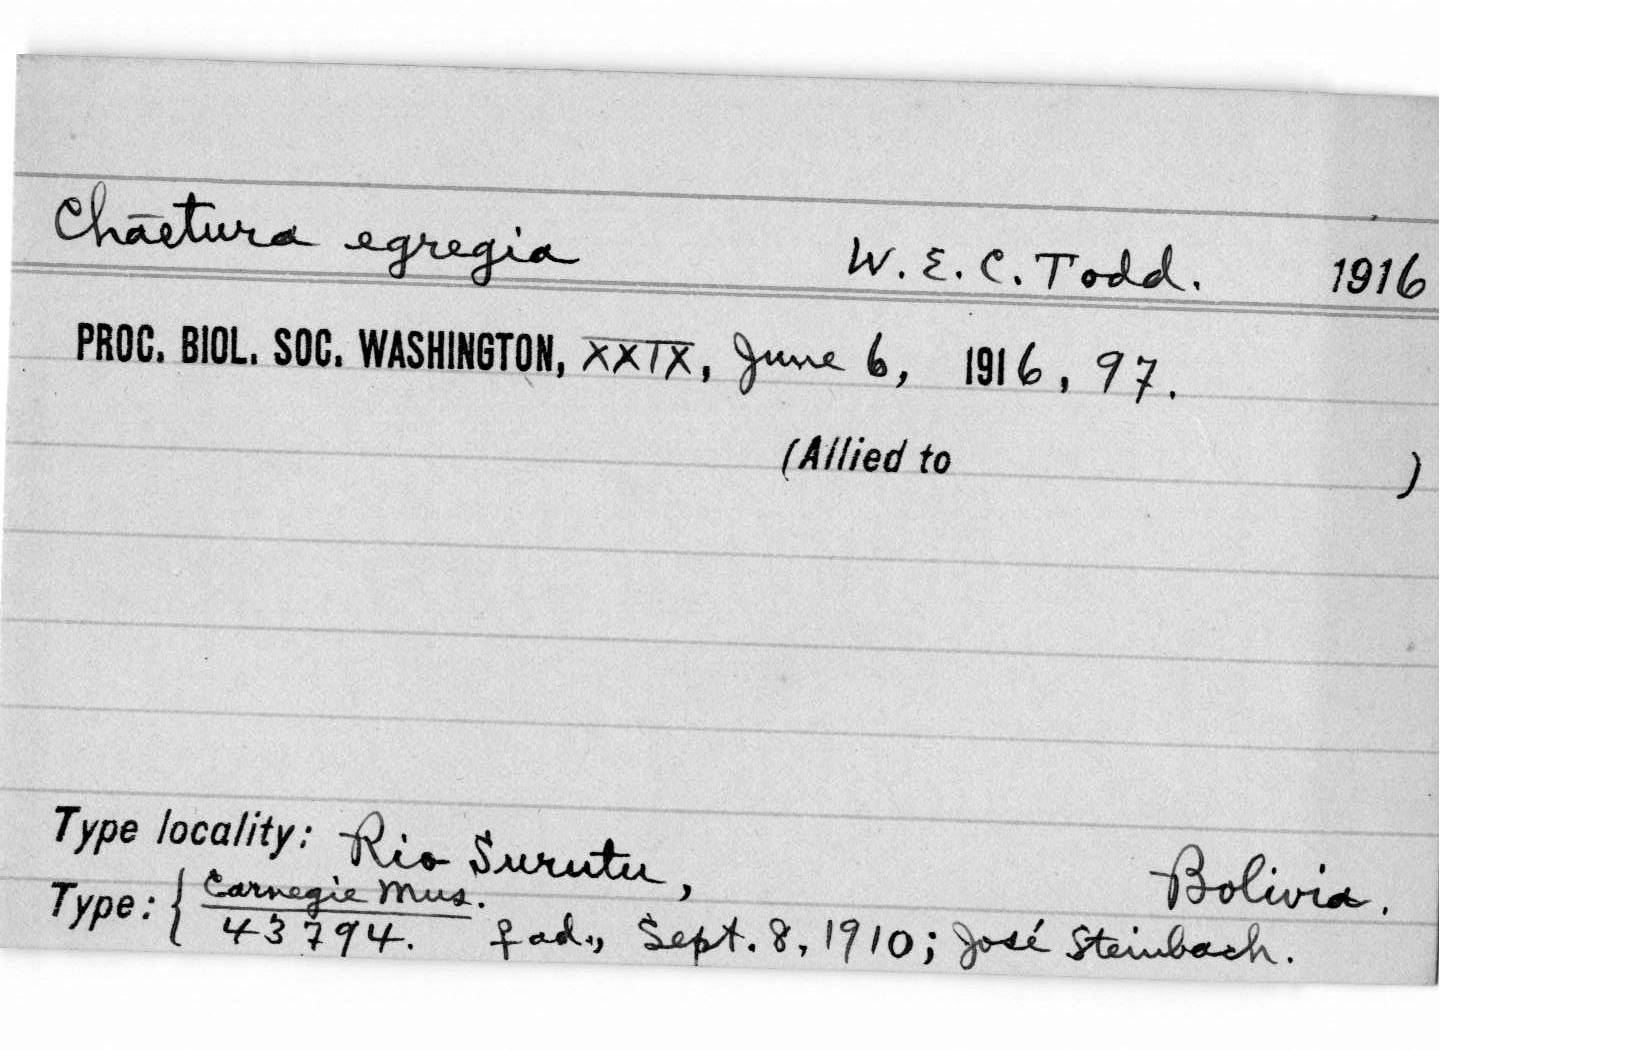 Chaetura egregia W. E. C. Todd. 1916
PROC. BIOL. SOC. WASHINGTON, XXIX, June 6, 1916, 97.
(Allied to )
Type locality: Rio Surutu, Bolivia.
Type: { Carnegie Mus.
43794. ♀ ad., Sept. 8, 1910; José Steinbach.